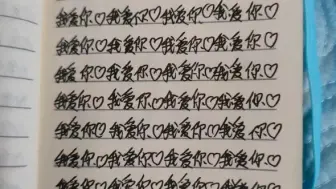 我爱你♡我爱你♡我爱你♡我爱你♡
我爱你♡我爱你♡我爱你♡我爱你♡
我爱你♡我爱你♡我爱你♡我爱你♡
我爱你♡我爱你♡我爱你♡我爱你♡
我爱你♡我爱你♡我爱你♡我爱你♡
我爱你♡我爱你♡我爱你♡我爱你♡
我爱你♡我爱你♡我爱你♡我爱你♡